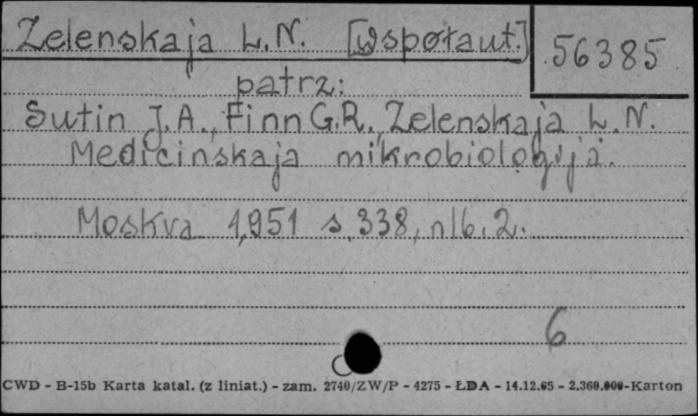 Zelenskaja L.N. [współaut.]
56385
patrz:
Sutin J.A., Finn G.R., Zelenskaja L.N.
Medicinskaja mikrobiologija.
Moskva 1951 s. 338, nlb. 2.
6
CWD - B-15b Karta katal. (z liniat.) - zam. 2740/ZW/P - 4275 - ŁDA - 14.12.65 - 2.360.000-Karton